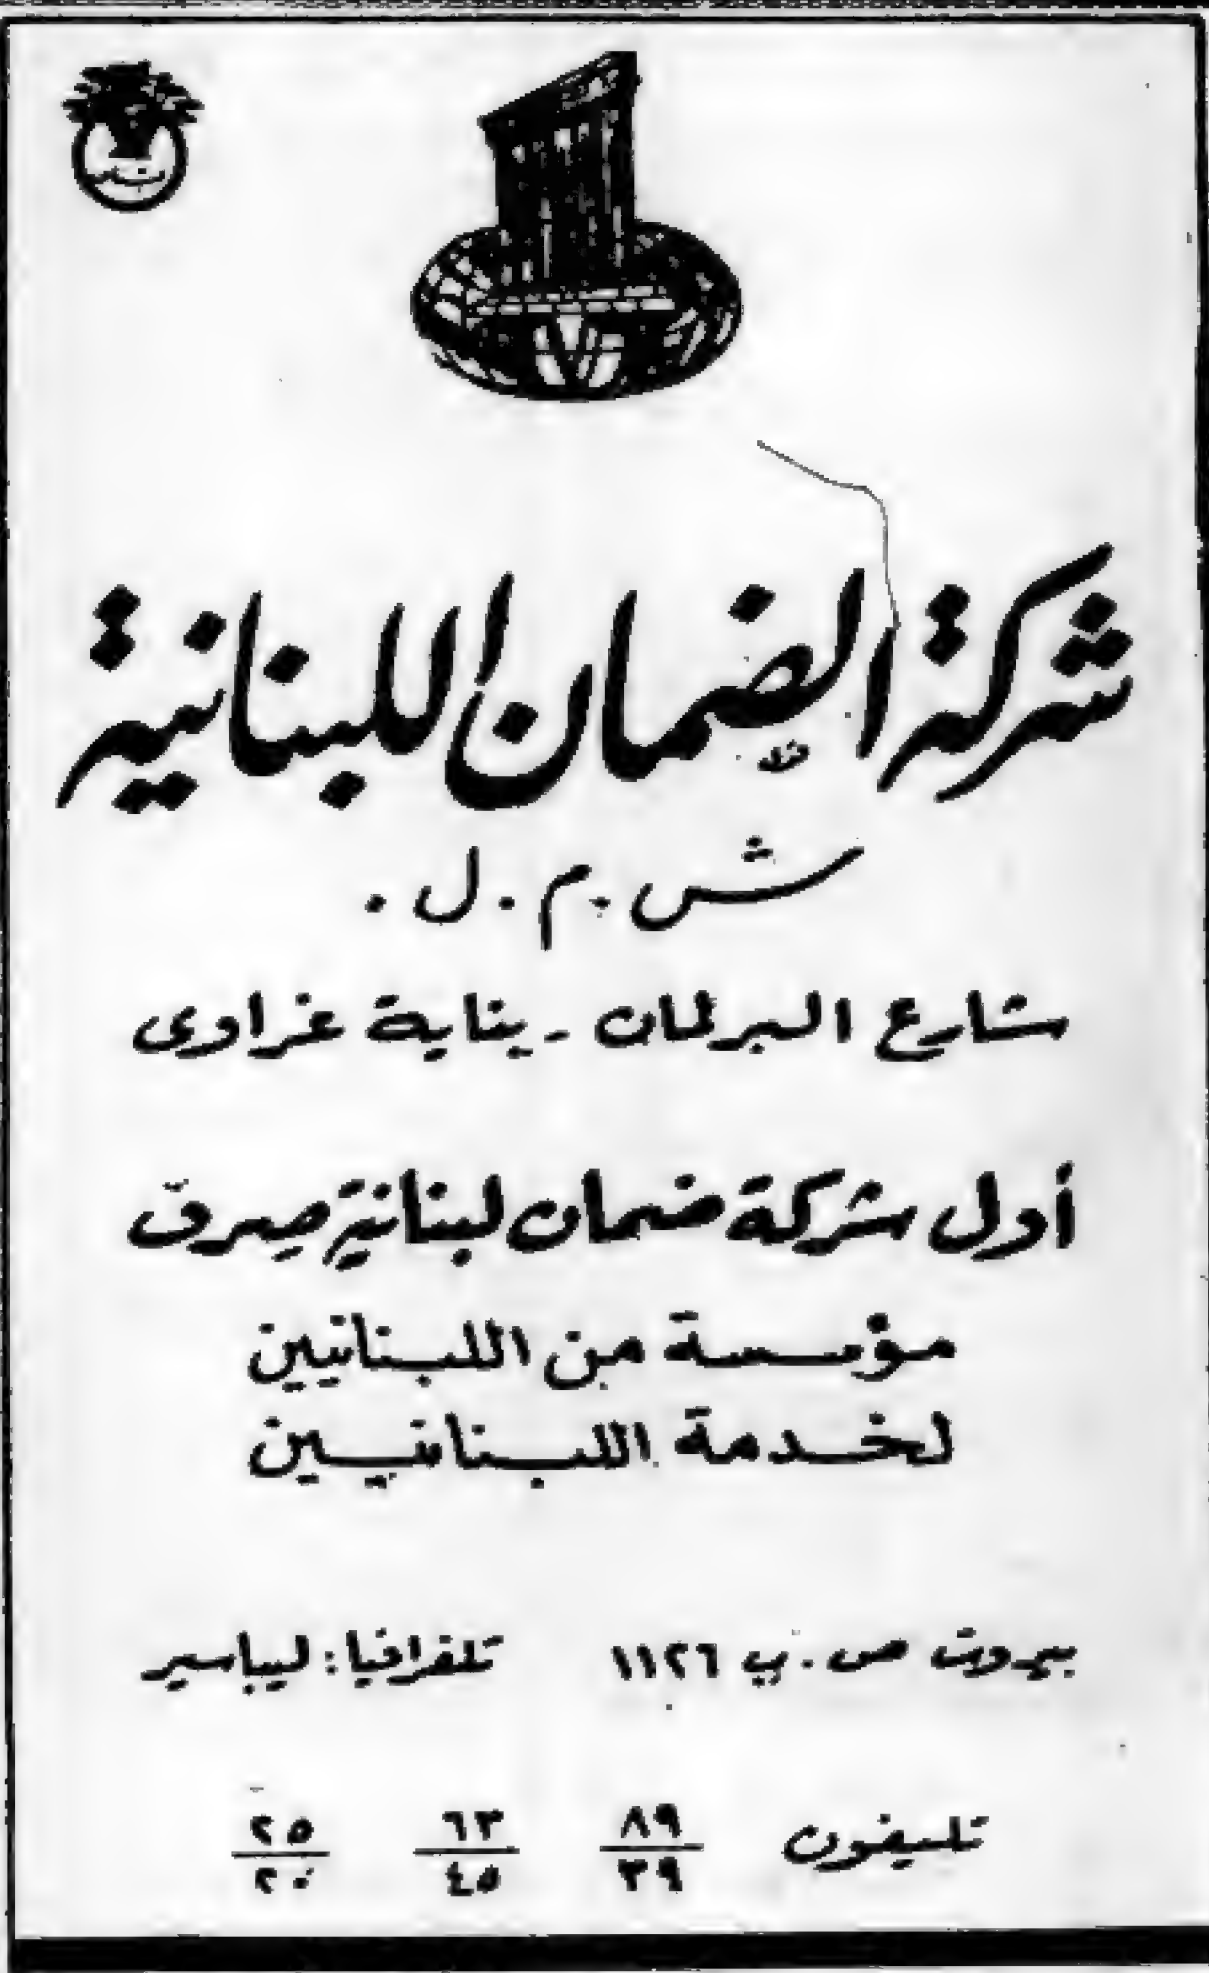 شركة الضمان اللبنانية
ش.م.ل.
شارع البرلمان - بناية غراوى
أول شركة ضمان لبنانية صرف
مؤسسة من اللبنانيين
لخدمة اللبنانيين
بيروت ص.ب ١١٢٦ تلغرافيا: ليباسير
تليفون ٨٩/٣٩ ٦٣/٤٥ ٢٥/٢٠